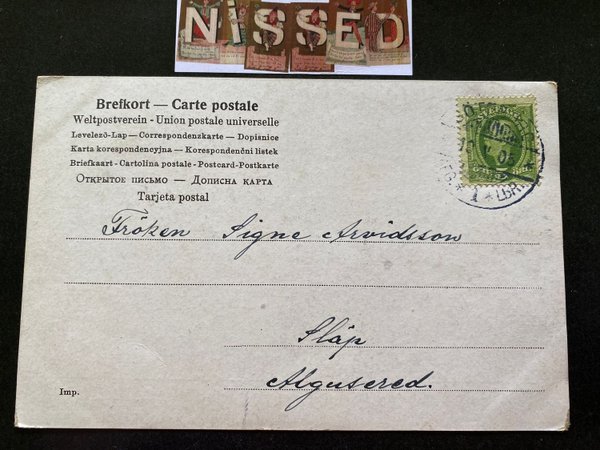 NiSSED
Brefkort — Carte postale
Weltpostverein - Union postale universelle
Levelező-Lap — Correspondenzkarte — Dopisnice
Karta korespondencyjna — Korespondenční listek
Briefkaart - Cartolina postale - Postcard-Postkarte
Открытое письмо — Дописна карта
Tarjeta postal
Fröken Signe Arvidsson
Släp
Algusered.
Imp.